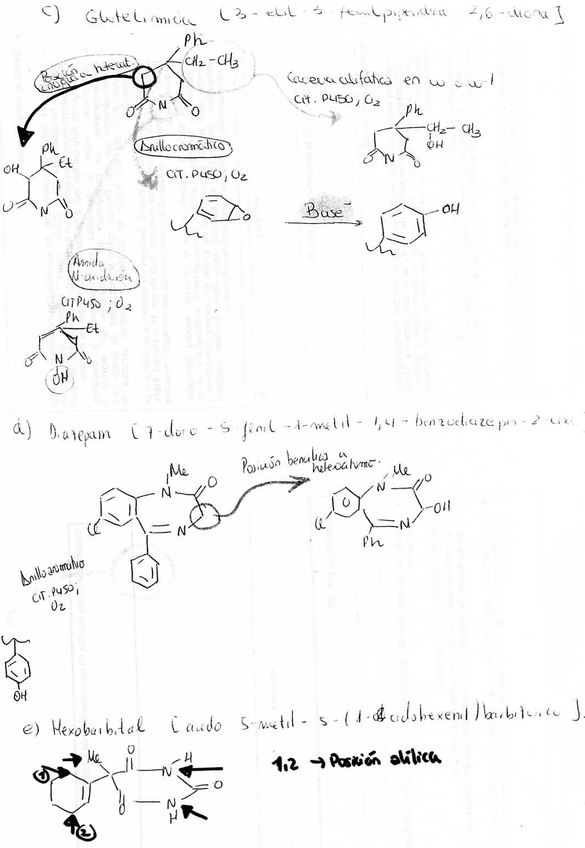 c) Glutetimida [3-etil-3-fenilpiperidina-2,6-diona]
Ph
CH₂-CH₃
Posición
Cadena alifática en ω o ω-1
CIT. P450, O₂
Ph
CH-CH₃
OH
O N O
O N O
Anillo aromático
CIT. P450, O₂
O
Base
OH
Ph
OH
Et
O N O
Amida
N-oxidación
CIT P450; O₂
Ph
Et
O N O
OH
d) Diazepam [7-cloro-5-fenil-1-metil-1,4-benzodiazepin-2
Posición bencílica a
heteroátomo.
Me
N
O
Cl
N
Me
N
O
OH
Cl
N
Ph
Anillo aromático
CIT. P450;
O₂
OH
e) Hexobarbital [ácido 5-metil-5-(1-ciclohexenil)barbitúrico].
Me
O
H
N
O
N
H
O
1
2
1,2 → Posición alílica